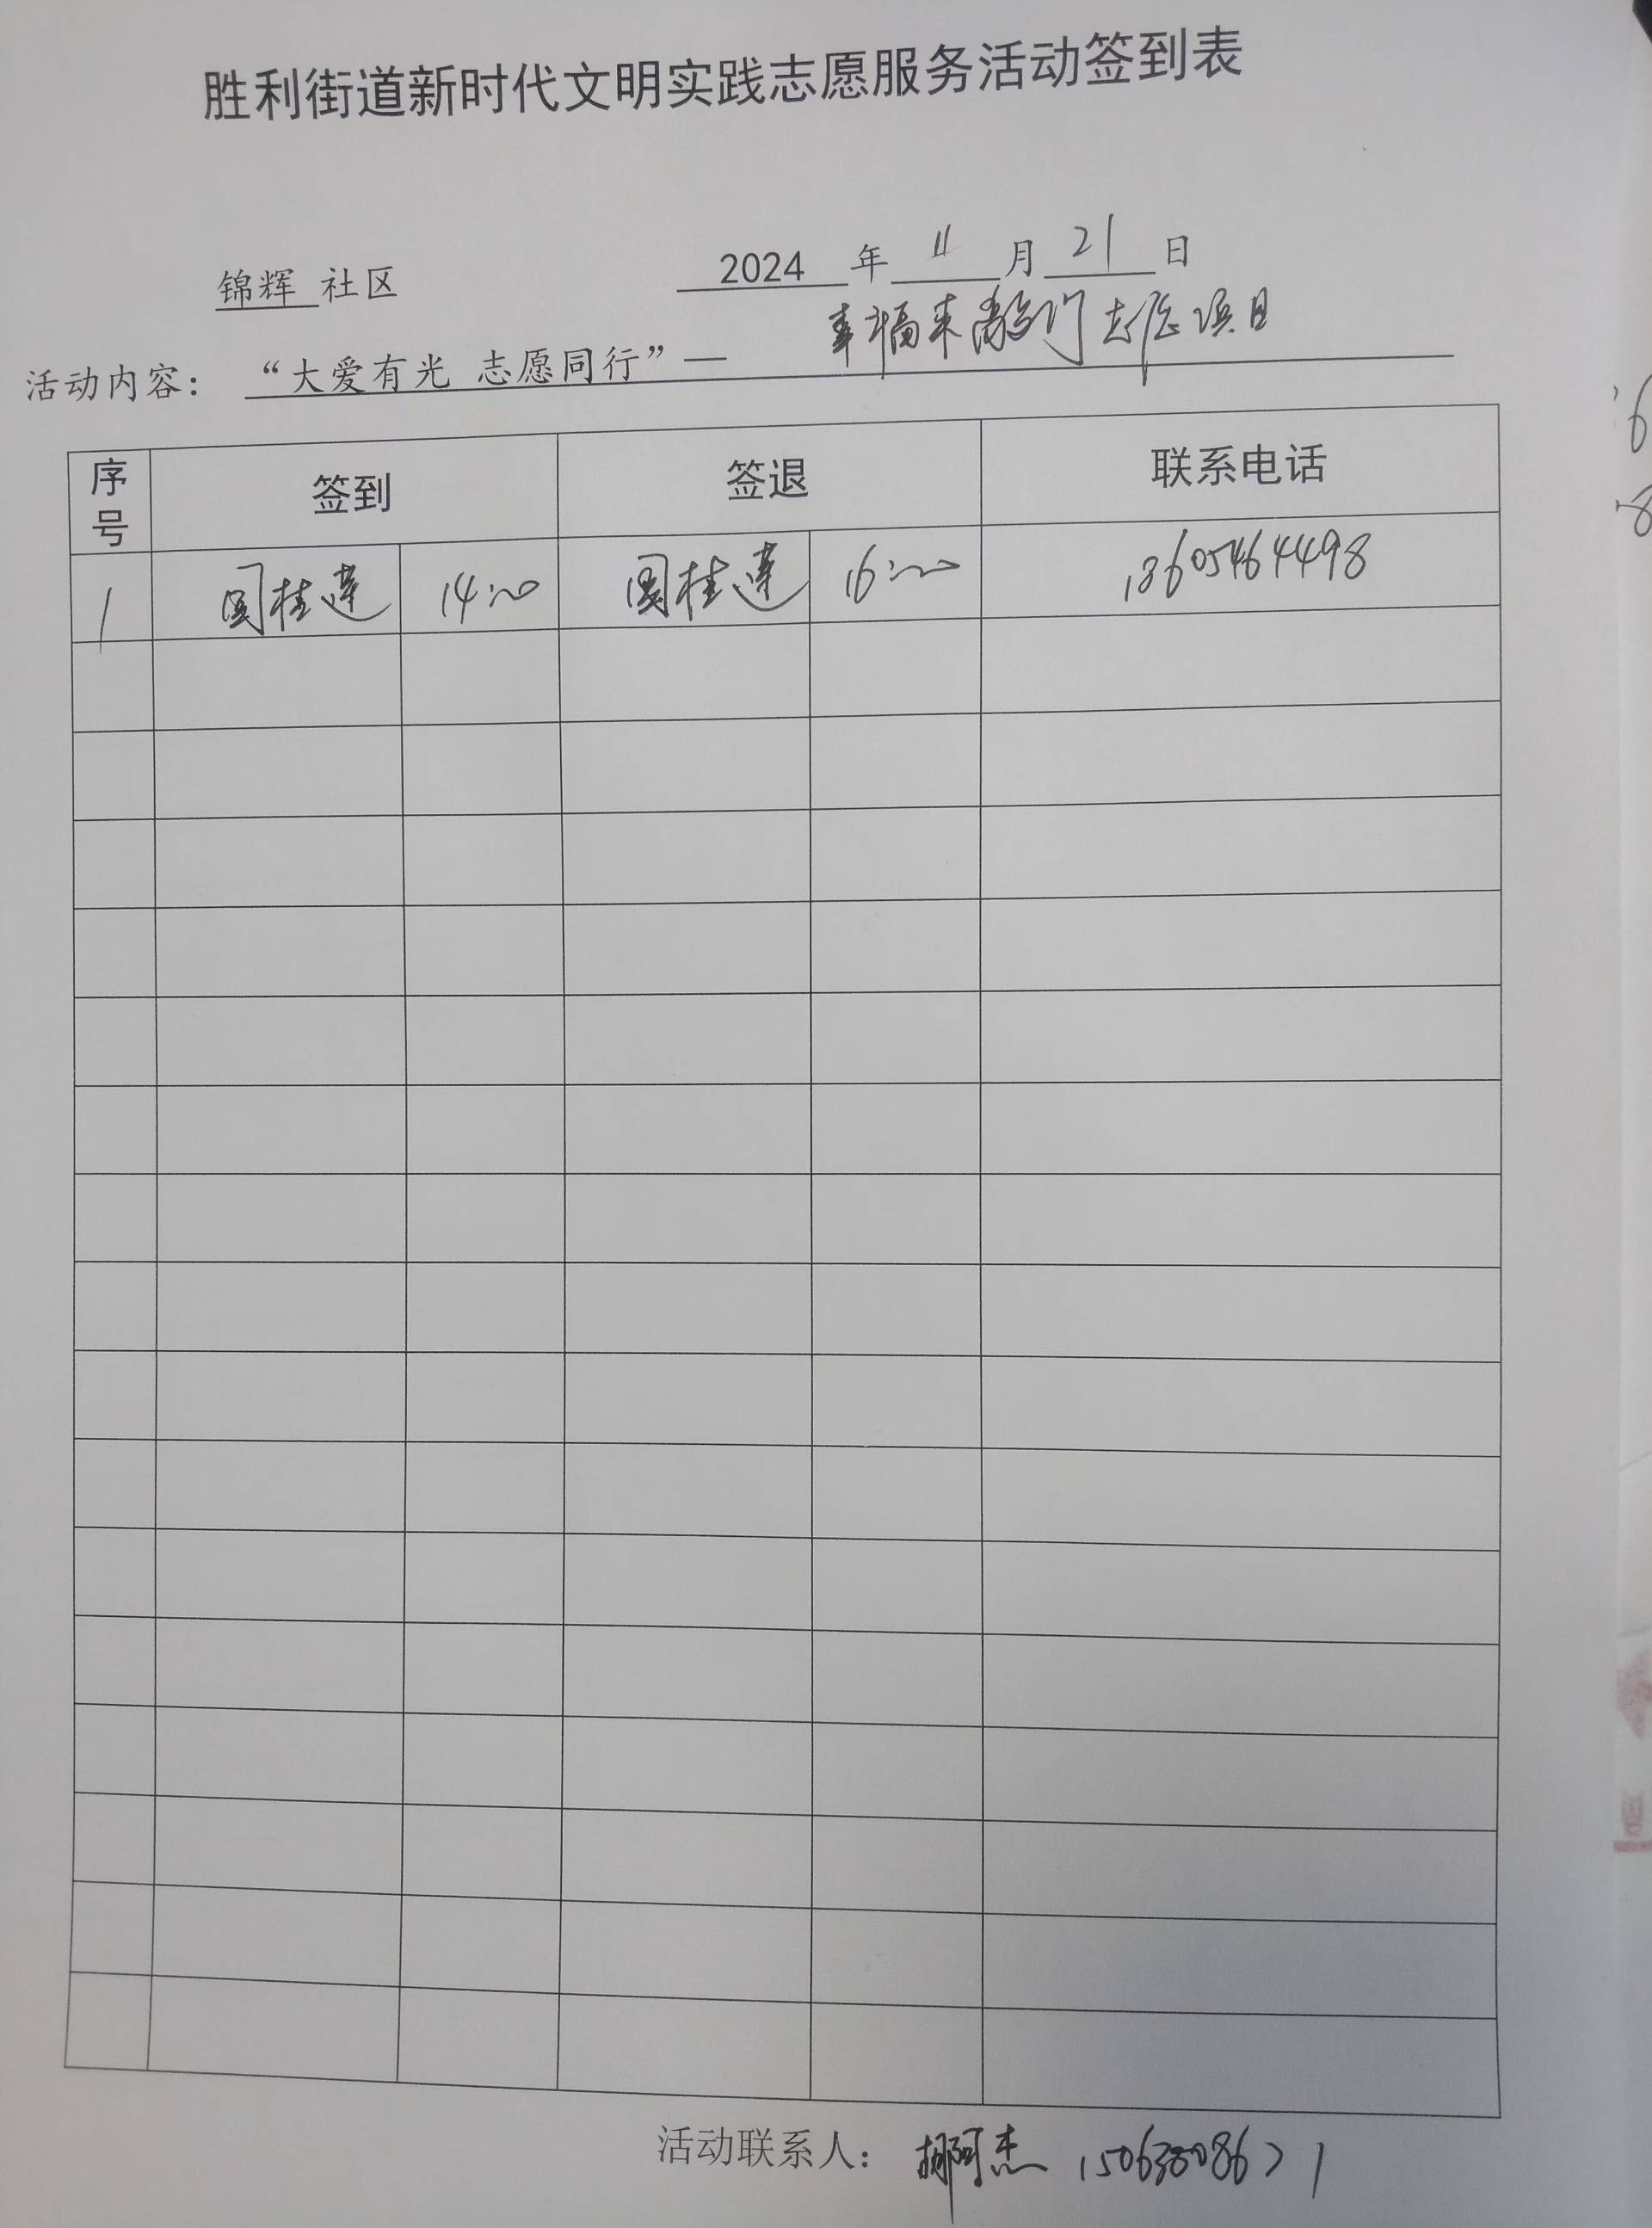 胜利街道新时代文明实践志愿服务活动签到表
锦辉 社区 2024 年 11 月 21 日
活动内容： “大爱有光 志愿同行”— 幸福来敲门志愿项目
序号 签到 签退 联系电话
1 桂莲 14:00 桂莲 16:00 13605464498
活动联系人： 杰